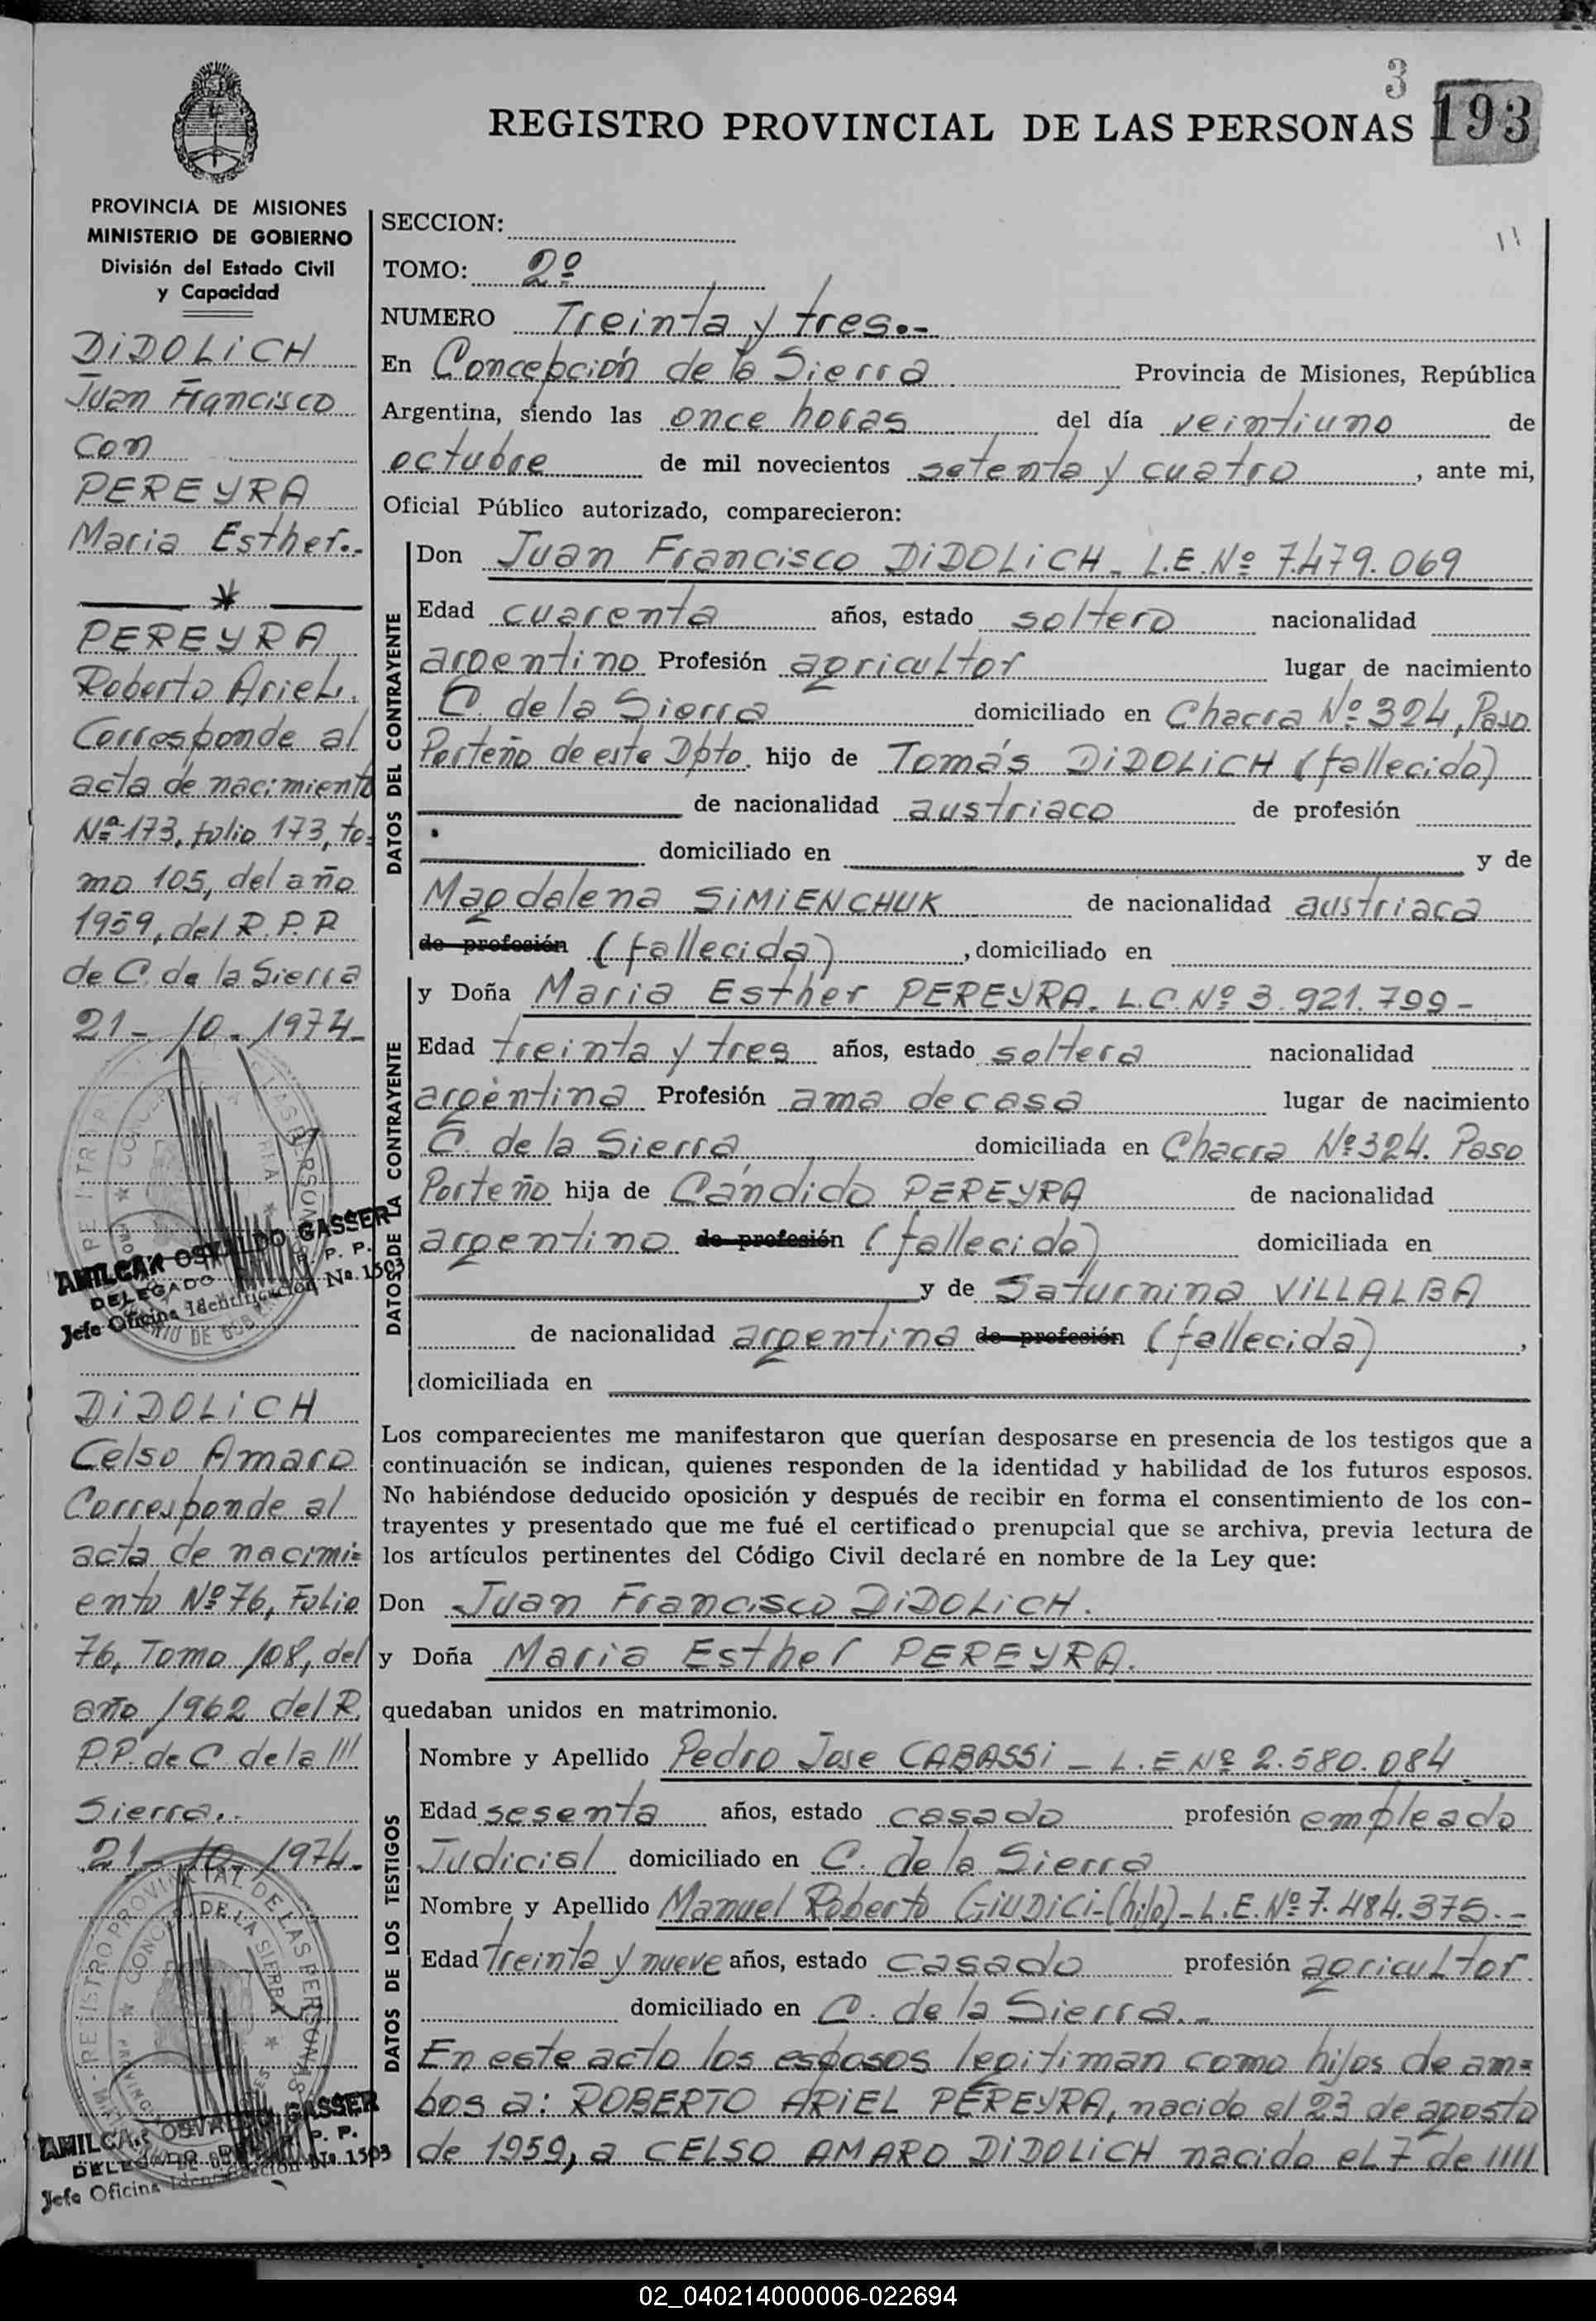 3
REGISTRO PROVINCIAL DE LAS PERSONAS 193
11
PROVINCIA DE MISIONES
MINISTERIO DE GOBIERNO
División del Estado Civil
y Capacidad
DiDOLiCH
Juan Francisco
con
PEREYRA
Maria Esther.-
PEREYRA
Roberto Ariel.
Corresponde al
acta de nacimiento
Nº 173, folio 173, to-
mo 105, del año
1959, del R.P.P.
de C. de la Sierra
21-10-1974-
AMILCAR OSVALDO GASSER
DELEGADO R. P. P.
Jefe Oficina Identificación No. 1503
DiDOLiCH
Celso Amaro
Corresponde al
acta de nacimi=
ento Nº 76, Folio
76, Tomo 108, del
año 1962 del R.
P.P. de C. de la ///
Sierra..
21-10-1974.
REGISTRO PROVINCIAL DE LAS PERSONAS
DE LA SIERRA
AMILCAR OSVALDO GASSER
DELEGADO R. P. P.
Jefe Oficina Identificación No. 1503
SECCION:
TOMO: 2º
NUMERO Treinta y tres.-
En Concepción de la Sierra Provincia de Misiones, República
Argentina, siendo las once horas del día veintiuno de
octubre de mil novecientos setenta y cuatro, ante mi,
Oficial Público autorizado, comparecieron:
DATOS DEL CONTRAYENTE
Don Juan Francisco DiDOLiCH - L.E. Nº 7.479.069
Edad cuarenta años, estado soltero nacionalidad
argentino Profesión agricultor lugar de nacimiento
C. de la Sierra domiciliado en Chacra Nº 324, Paso
Porteño de este Dpto. hijo de Tomás DiDOLiCH (fallecido)
de nacionalidad austriaco de profesión
domiciliado en y de
Magdalena SiMiENCHUK de nacionalidad austriaca
de profesión (fallecida), domiciliado en
DATOS DE LA CONTRAYENTE
y Doña Maria Esther PEREYRA. L.C. Nº 3.921.799-
Edad treinta y tres años, estado soltera nacionalidad
argentina Profesión ama de casa lugar de nacimiento
C. de la Sierra domiciliada en Chacra Nº 324. Paso
Porteño hija de Cándido PEREYRA de nacionalidad
argentino de profesión (fallecido) domiciliada en
y de Saturnina ViLLALBA
de nacionalidad argentina de profesión (fallecida),
domiciliada en
Los comparecientes me manifestaron que querían desposarse en presencia de los testigos que a
continuación se indican, quienes responden de la identidad y habilidad de los futuros esposos.
No habiéndose deducido oposición y después de recibir en forma el consentimiento de los con-
trayentes y presentado que me fué el certificado prenupcial que se archiva, previa lectura de
los artículos pertinentes del Código Civil declaré en nombre de la Ley que:
Don Juan Francisco DiDOLiCH.
y Doña Maria Esther PEREYRA.
quedaban unidos en matrimonio.
DATOS DE LOS TESTIGOS
Nombre y Apellido Pedro Jose CABASSi - L.E. Nº 2.580.084
Edad sesenta años, estado casado profesión empleado
Judicial domiciliado en C. de la Sierra
Nombre y Apellido Manuel Roberto GiUDiCi-(hijo)-L.E. Nº 7.484.375.-
Edad treinta y nueve años, estado casado profesión agricultor
domiciliado en C. de la Sierra..-
En este acto los esposos legitiman como hijos de am=
bos a: ROBERTO ARiEL PEREYRA, nacido el 23 de agosto
de 1959, a CELSO AMARO DiDOLiCH nacido el 7 de /////
02_040214000006-022694